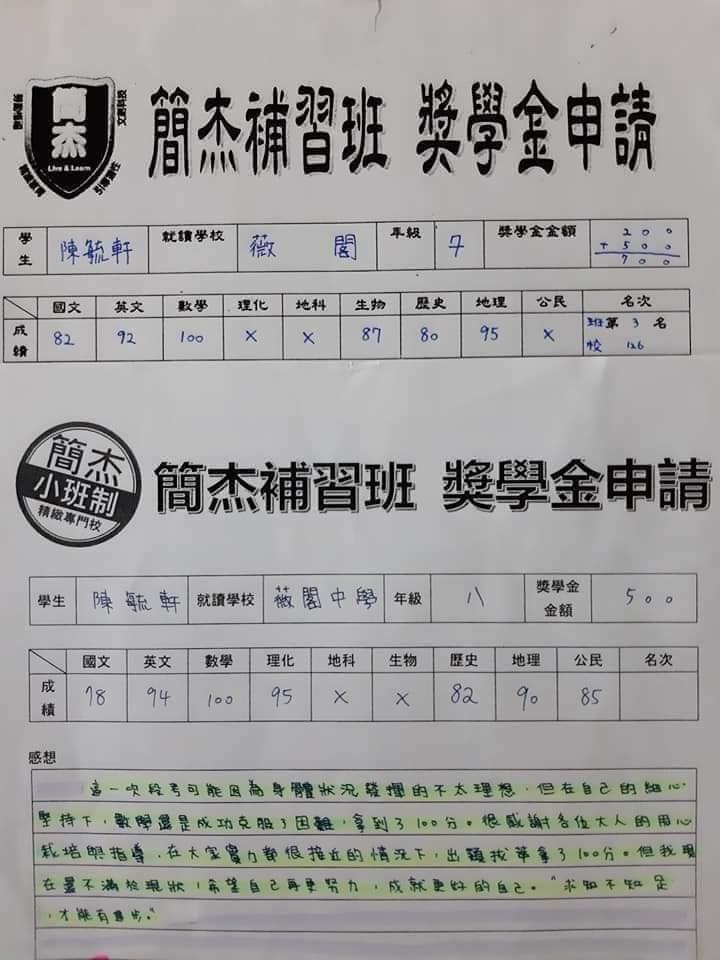 簡杰
Live & Learn
簡杰補習班 獎學金申請
學生 陳毓軒 就讀學校 薇閣 年級 7 獎學金金額 200
+500
700
國文 英文 數學 理化 地科 生物 歷史 地理 公民 名次
成績 82 92 100 X X 87 80 95 X 班第3名
校 126
簡杰
小班制
精緻專門校
簡杰補習班 獎學金申請
學生 陳毓軒 就讀學校 薇閣中學 年級 八 獎學金金額 500
國文 英文 數學 理化 地科 生物 歷史 地理 公民 名次
成績 78 94 100 95 X X 82 90 85
感想
這一次段考可能因為身體狀況發揮的不太理想,但在自己的細心
堅持下,數學還是成功克服了困難,拿到了100分。很感謝各位大人的用心
栽培與指導,在大家實力都很接近的情況下,出類拔萃拿了100分。但我現
在並不滿於現狀,希望自己再更努力,成就更好的自己。"求知不知足
,才能有進步。"